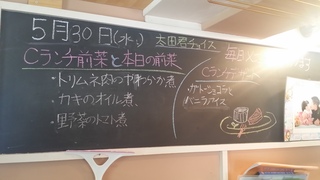 5月30日(水)
太田君チョイス
Cランチ前菜と本日の前菜
・トリムネ肉のやわらか煮
・カキのオイル煮
・野菜のトマト煮
毎日
Cランチデザート
・ガトーショコラと
バニラアイス